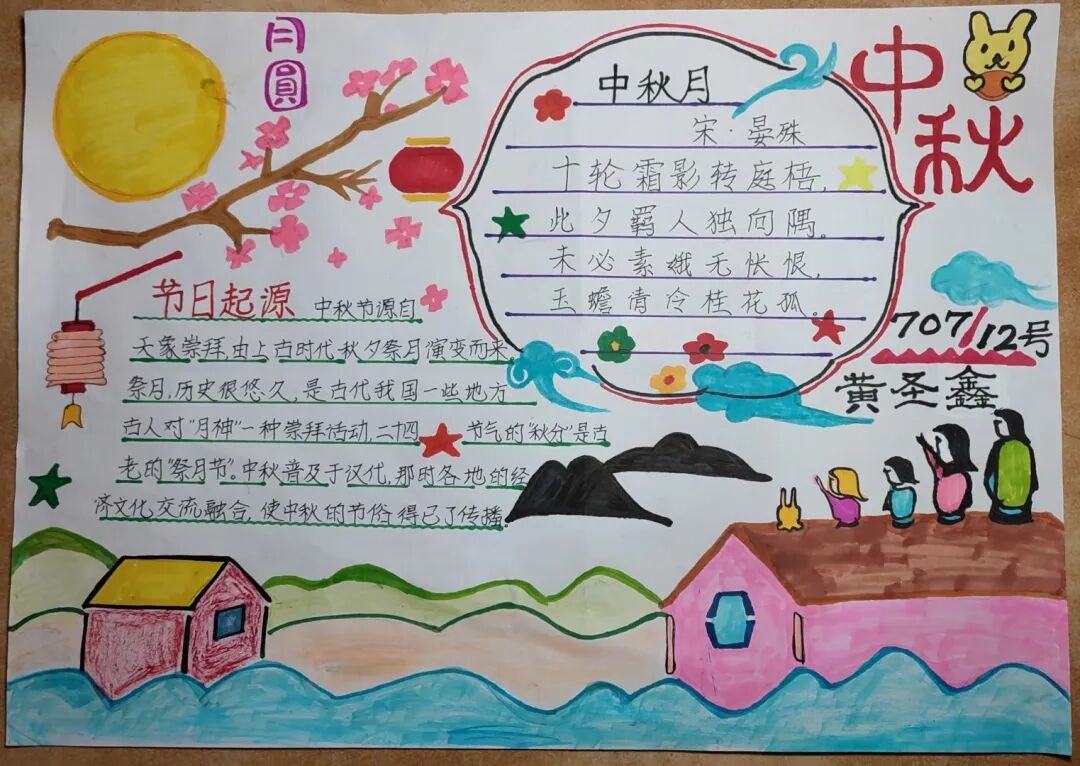 月
圓
中秋月
宋·晏殊
十轮霜影转庭梧,
此夕羁人独向隅。
未必素娥无怅恨,
玉蟾清冷桂花孤。
中秋
707/12号
黄圣鑫
节日起源 中秋节源自
天象崇拜,由上古时代秋夕祭月演变而来。
祭月,历史很悠久,是古代我国一些地方
古人对“月神”一种崇拜活动,二十四 节气的“秋分”是古
老的“祭月节”。中秋普及于汉代,那时各地的经
济文化交流融合,使中秋的节俗得已了传播.